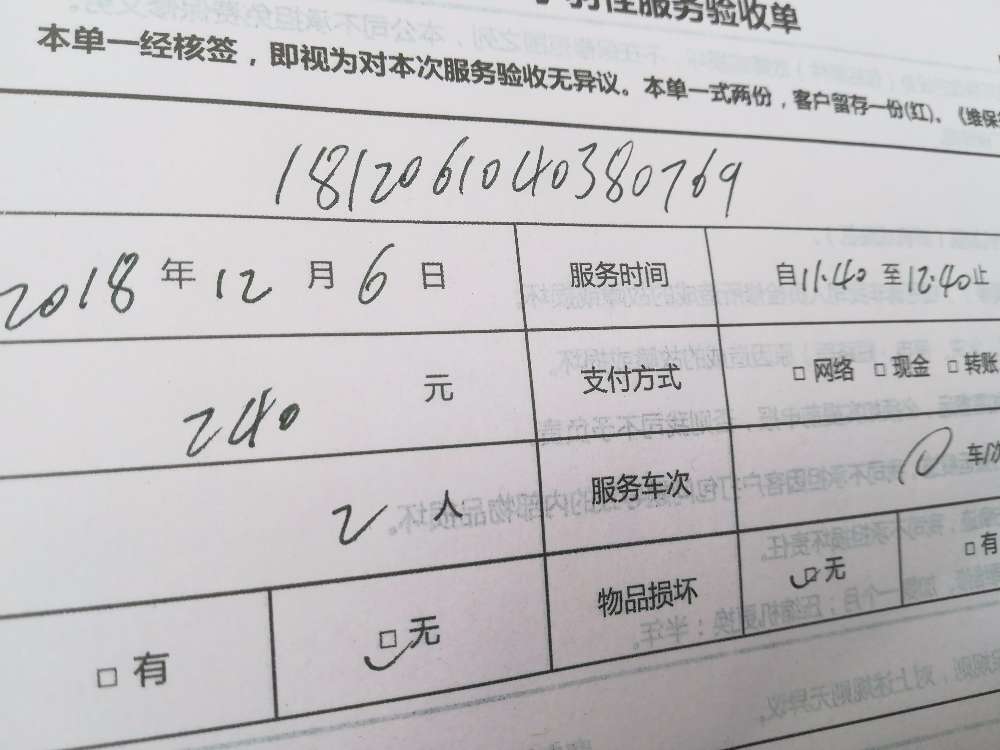 性服务验收单
本单一经核签，即视为对本次服务验收无异议。本单一式两份，客户留存一份(红)。《维保
1812061040380769
2018 年 12 月 6 日 服务时间 自11.40 至12.40止
240 元 支付方式 □ 网络 □ 现金 □ 转账
2 人 服务车次 0 车/次
□ 有 □ 无 物品损坏 □ 无 □ 有